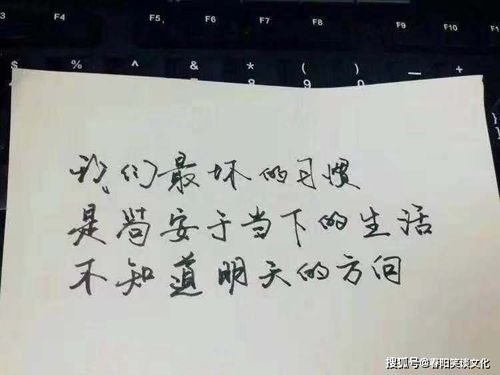 F4 F5 F6 F7 F8 F9 F10
$ % ^ & * ( ) _ +
我们最坏的习惯
是苟安于当下的生活
不知道明天的方向
搜狐号@春阳笑谈文化